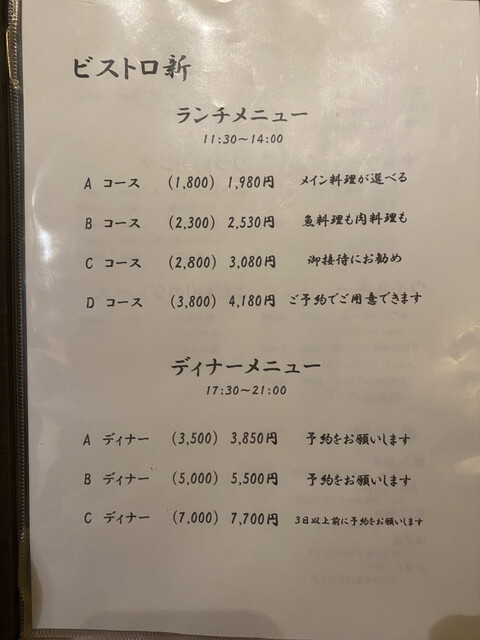 ビストロ新
ランチメニュー
11:30～14:00
A コース (1,800) 1,980円 メイン料理が選べる
B コース (2,300) 2,530円 魚料理も肉料理も
C コース (2,800) 3,080円 御接待にお勧め
D コース (3,800) 4,180円 ご予約でご用意できます
ディナーメニュー
17:30～21:00
A ディナー (3,500) 3,850円 予約をお願いします
B ディナー (5,000) 5,500円 予約をお願いします
C ディナー (7,000) 7,700円 3日以上前に予約をお願いします